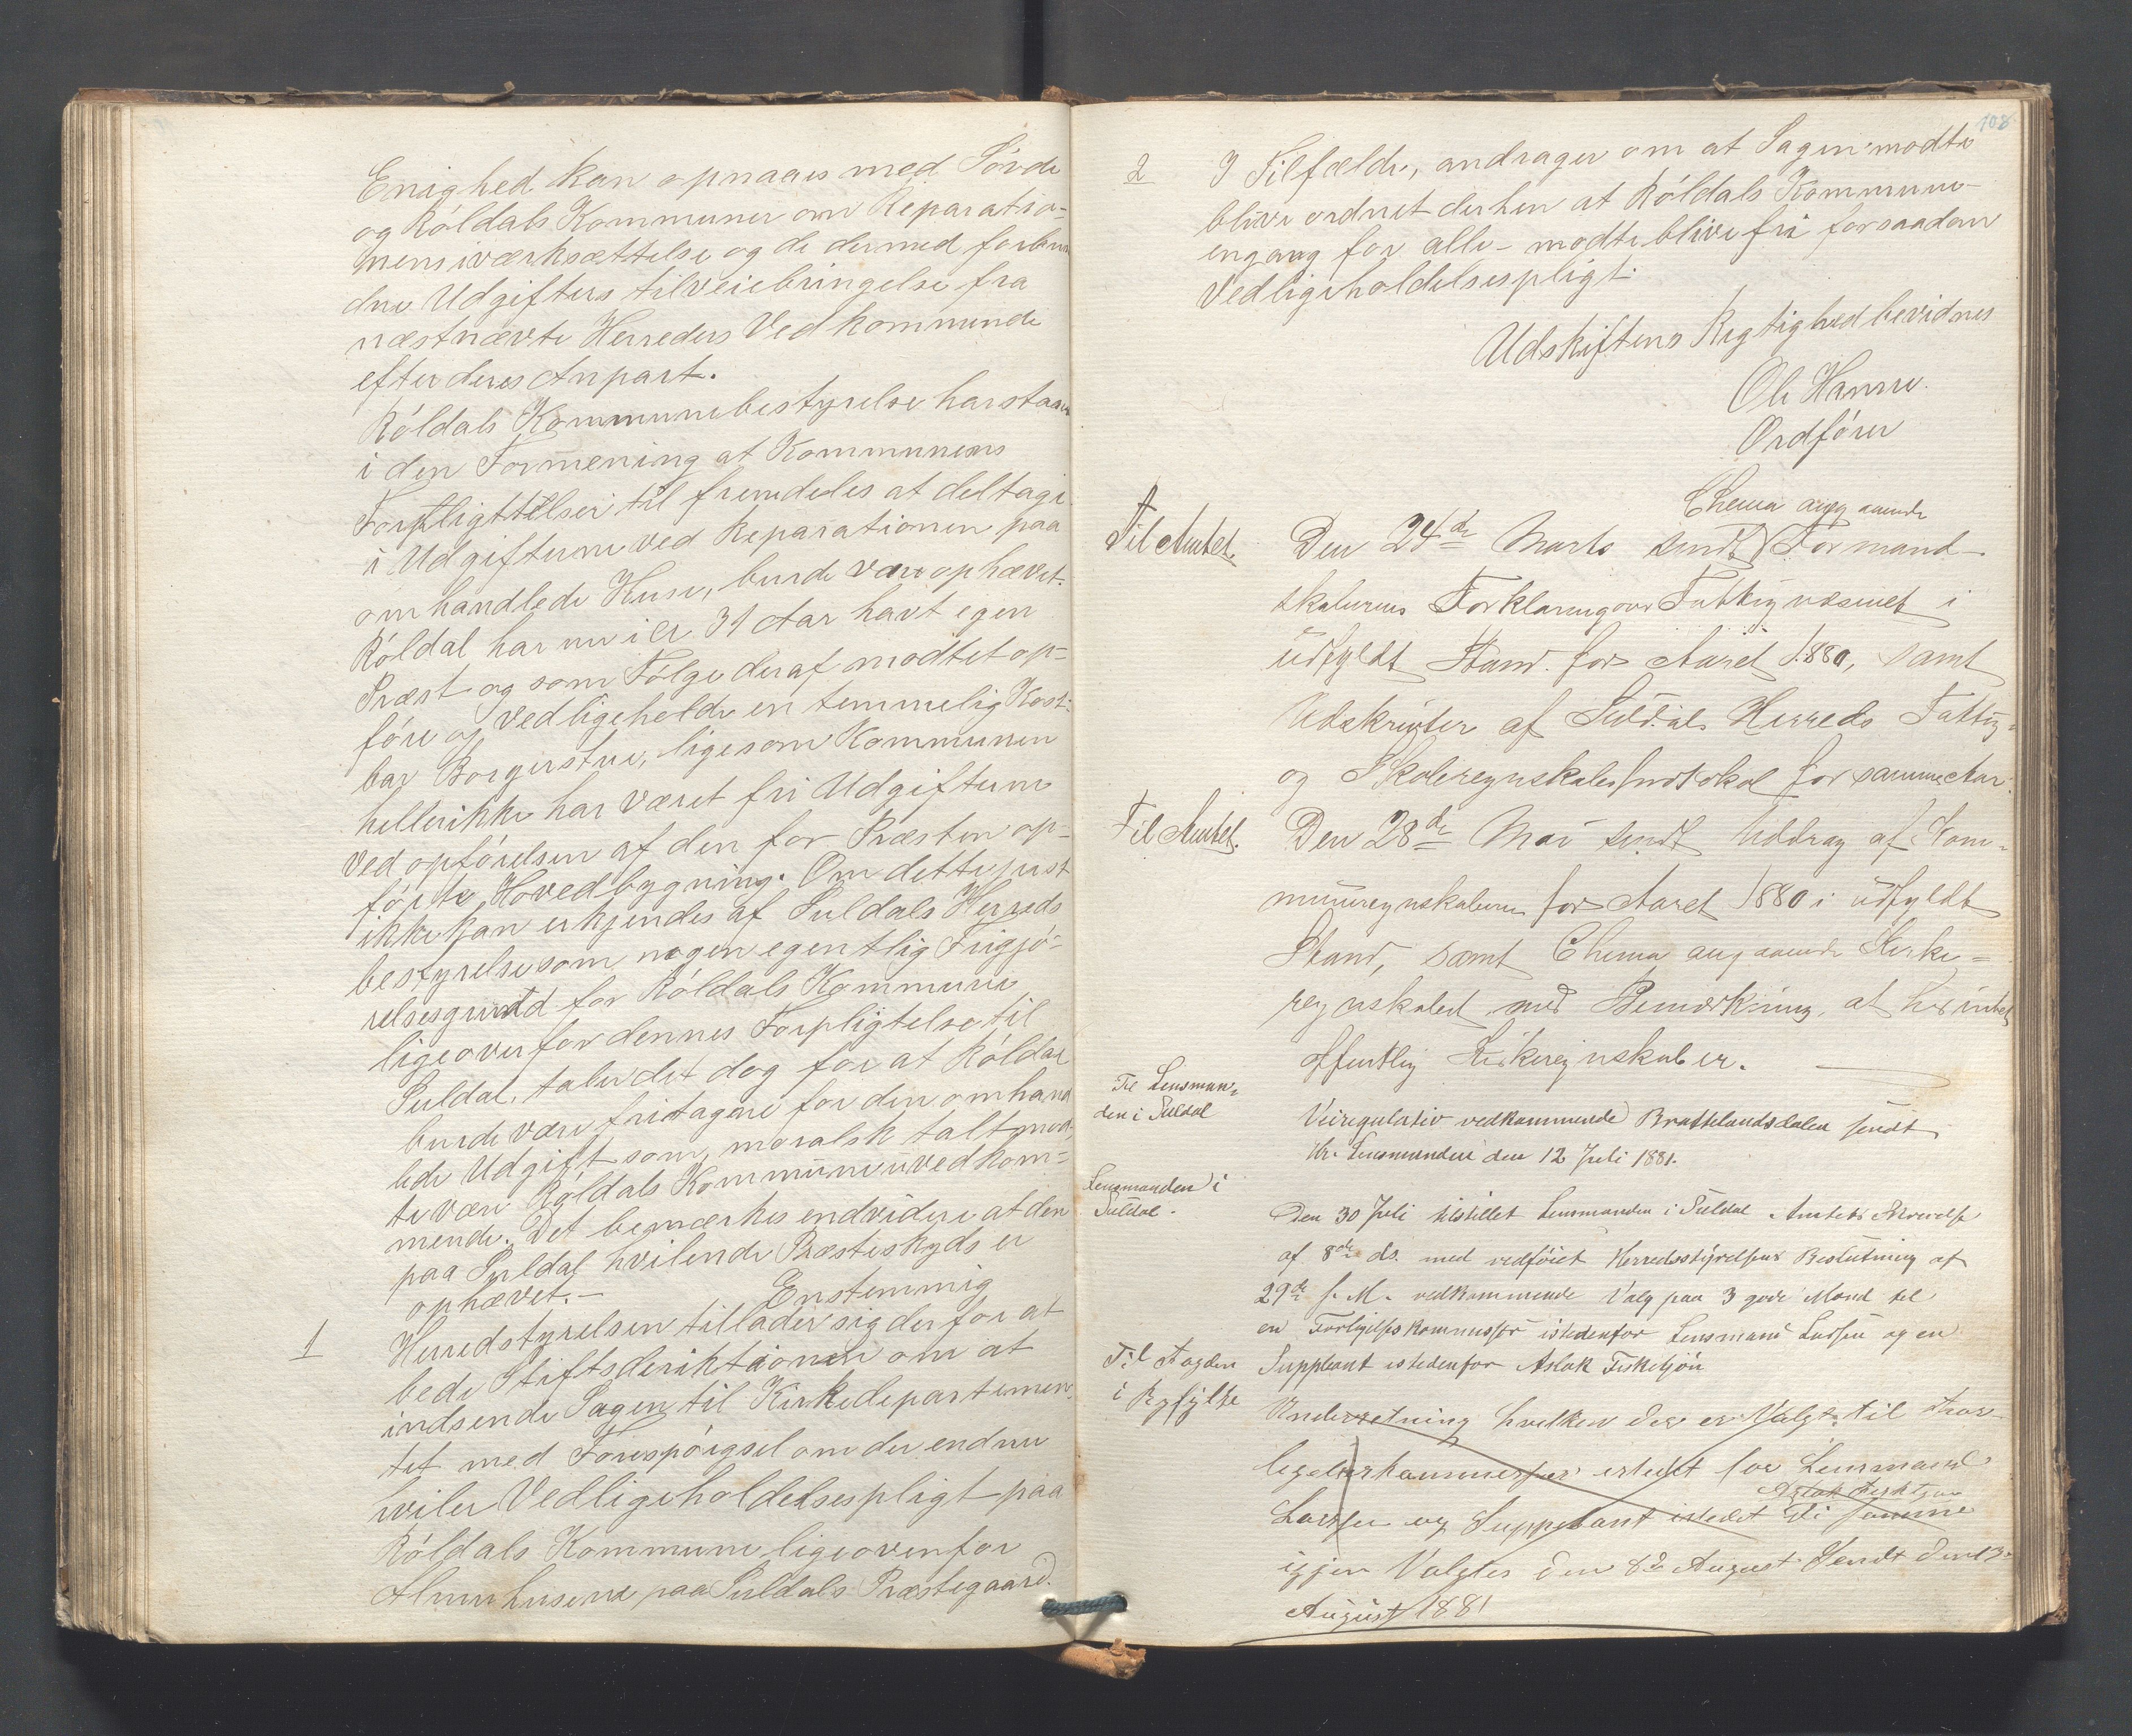 Enighed kan opnaaes med Sövde
og Röldals Kommuner om Reparatio-
nens iværksættelse og de dermed forbun
dne Udgifters tilveiebringelse fra
næstnævte Herreders Vedkommende
efter deres Anpart.
Röldals Kommunebestyrelse har staaet
i den Formening at Kommunens
Forpligttelser til fremdeles at deltage
i Udgifterne ved Reparationen paa
omhandlede Huse, burde være ophævet.
Röldal har nu i ca 31 Aar havt egen
Præst og som Følge deraf modtet op-
føre og vedligeholde en temmelig Kost-
bar Borgerstue, ligesom Kommunen
heller ikke har været fri Udgifterne
ved opförelsen af den for Præsten op-
förte Hovedbygning. Om dette just
ikke kan erkjendes af Suldals Herreds
bestyrelse som nogen egentlig Frigjö-
relsesgrund for Röldals Kommune
ligeoverfor dennes Forpligtelse til
Suldal, taler det dog for at Röldal
burde være fritagene for den omhand
lede Udgift som, moralsk talt maa-
te være Röldals Kommune uvedkom-
mende. Det bemærkes endvidere at den
paa Suldal hvilende Præsteskyds er
ophævet. - Enstemmig
1 Herredstyrelsen tillader sig derfor at
bede Stiftsdirektionen om at
indsende Sagen til Kirkedepartemen
tet med Forespörgsel om der endnu
hviler Vedligeholdelsespligt paa
Röldals Kommune ligeoverfor
Almuhusene paa Suldals Præstegaard.
108
2 I Tilfælde, andrager om at Sagen modte
blive ordnet derhen at Röldals Kommune-
engang for alle - modte blive fri for saadan
Vedligeholdelsespligt.
Udskiftens Rigtighed bevidnes
Ole Hamre.
Ordförer
Chema angaaende
Til Amtet. Den 24de Marts sendt Formand-
skaberns Forklaring over Fattigvæsenet i
udfyldt Stand. for Aaret 1880, samt
Udskrivter af Suldal Herreds Fattig-
og Skoleregnskabsprotokol for samme Aar.
Til Amtet. Den 28de Mai sendt Uddrag af Kom-
muneregnskaberne for Aaret 1880 i udfyldt
Stand, samt Chema angaaende Kirke=
regnskabet med Bemærkning, at her intet
offentlig Kirkeregnskab er.
Til Lensman-
den i Suldal
Veiregulativ vedkommende Brattelandsdalen sendt
Hr. Lensmanden den 12 Juli 1881.
Lensmanden i
Suldal.
Den 30 Juli tilstillet Lensmanden i Suldal Amtets Skrivelse
af 8de ds. med vedføiet Herredsstyrelsens Beslutning af
29de s. M. vedkommende Valg paa 3 gode Mænd til
en Forligelseskommissær istedenfor Lensmand Larsen og en
Suppleant istedenfor Aslak Fisketjön
Til Fogden
i Ryfylke
Underretning hvilken der er Valgt til For-
legelseskommessær istedet for Lensmand
Aslak Fisketjøn
Larsen og Suppeleant istedet di samme
igjen Valgtes den 8de August Sendt den 13.
August 1881